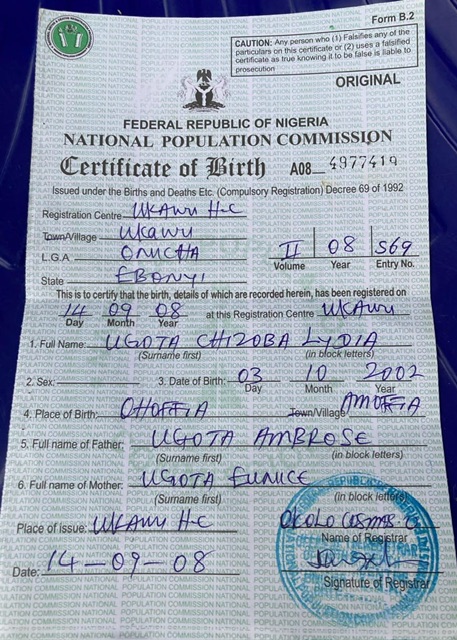 Form B.2
CAUTION: Any person who (1) Falsifies any of the
particulars on this certificate or (2) uses a falsified
certificate as true knowing it to be false is liable to
prosecution
ORIGINAL
FEDERAL REPUBLIC OF NIGERIA
NATIONAL POPULATION COMMISSION
Certificate of Birth A08 4977419
Issued under the Births and Deaths Etc. (Compulsory Registration) Decree 69 of 1992
Registration Centre UKAWU H-C
Town/Village UKAWU
L.G.A. ONICHA
State EBONYI
II 08 569
Volume Year Entry No.
This is to certify that the birth, details of which are recorded herein, has been registered on
14 09 08 at this Registration Centre UKAWU
Day Month Year
1. Full Name: UGOTA CHIZOBA LYDIA
(Surname first) (in block letters)
2. Sex: 3. Date of Birth: 03 10 2002
Day Month Year
4. Place of Birth: OHOFFIA Town/Village AMOFFIA
5. Full name of Father: UGOTA AMBROSE
(Surname first) (in block letters)
6. Full name of Mother: UGOTA EUNICE
(Surname first) (in block letters)
Place of issue: UKAWU H-C OKOLO COSMAS
Name of Registrar
Date: 14-09-08
Signature of Registrar